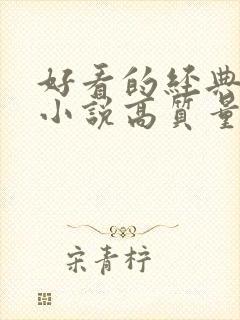 好看的经典
小説高質量
宋青柠